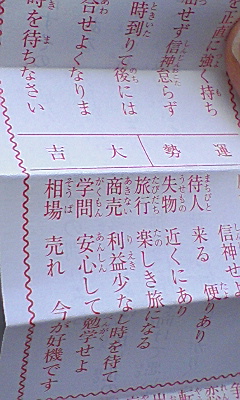 を正直に強く持ち
揺せず信神怠らず
時到りて後には
合せよくなりま
時を待ちなさい
運勢 大吉
信神せよ
待人 来る 便りあり
失物 近くにあり
旅行 楽しき旅になる
商売 利益少なし時を待て
学問 安心して勉学せよ
相場 売れ 今が好機です